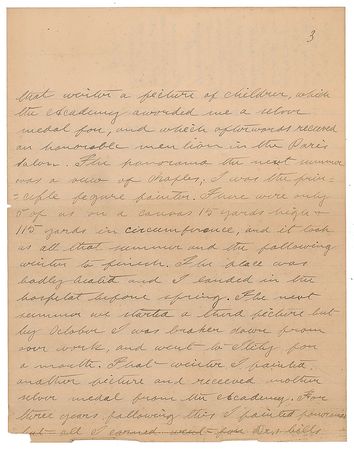 3
that winter a picture of children, which
the Academy awarded me a silver
medal for, and which afterwords received
an honorable mention in the Paris
salon. The panorama the next summer
was a view of Naples; I was the prin-
=ciple figure painter. There were only
5 of us on a canvas 15 yards high &
115 yards in circumfrance, and it took
us all that summer and the following
winter to finish. The place was
badly heated and I landed in the
hospital before spring. The next
summer we started a third picture but
by October I was broken down from
over work, and went to Italy for
a month. That winter I painted
another picture and received another
silver medal from the Academy. For
three years following this I painted panoramas
but all I earned went for Drs bills